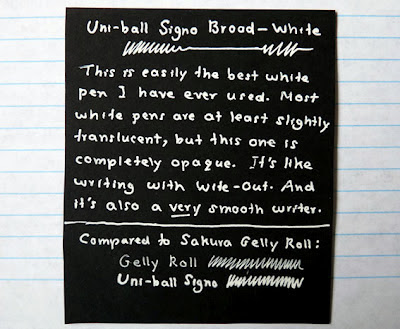 Uni-ball Signo Broad - White
This is easily the best white
pen I have ever used. Most
white pens are at least slightly
translucent, but this one is
completely opaque. It's like
writing with Wite-Out. And
it's also a very smooth writer.
Compared to Sakura Gelly Roll:
Gelly Roll
Uni-ball Signo